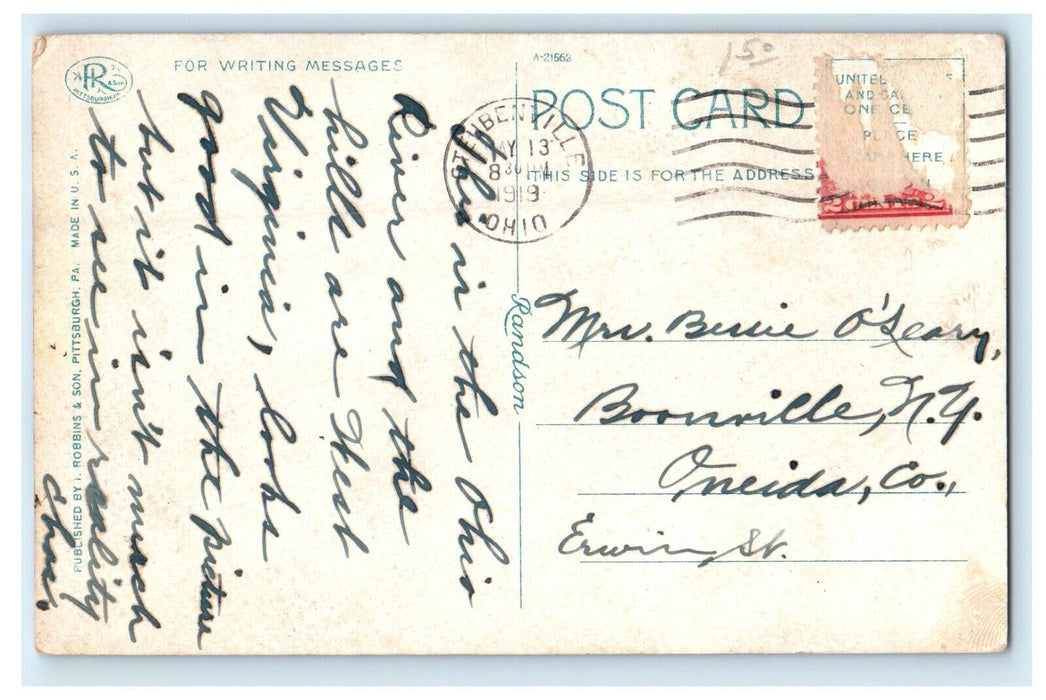 PR
& SON
PITTSBURGH, PA.
FOR WRITING MESSAGES
A-21562
150
POST CARD
THIS SIDE IS FOR THE ADDRESS
UNITED S
AND CA
ONE CE
PLACE
STAMP HERE
STEUBENVILLE
MAY 13
8 30 PM
1919
OHIO
This is the Ohio
River and the
hills are West
Virginia, looks
good in the picture
but it isn't much
to see in reality
Chas.
Randson
Mrs. Bessie O'Leary,
Boonville, N.Y.
Oneida, Co.,
Erwin St.
PUBLISHED BY I. ROBBINS & SON, PITTSBURGH, PA. MADE IN U.S.A.